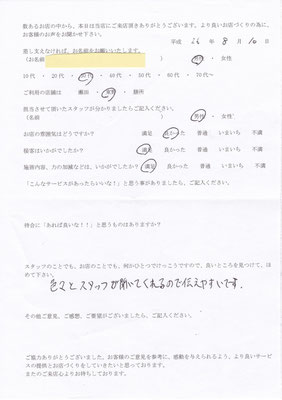 数あるお店の中から、本日は当店にご来店頂きありがとうございます。より良いお店づくりの為に、
お客様のお声をお聞かせ下さい。
平成 26 年 8 月 10 日
差し支えなければ、お名前をお願いいたします。
(お名前 ) 男性 ・ 女性
10代 ・ 20代 ・ 30代 ・ 40代 ・ 50代 ・ 60代 ・ 70代～
ご利用の店舗は
担当させて頂いたスタッフが分かりましたらご記入ください。
(名前 ) 男性 ・ 女性
お店の雰囲気はどうですか? 満足 良かった 普通 いまいち 不満
接客はいかがでしたか? 満足 良かった 普通 いまいち 不満
施術内容、力の加減などは、いかがでしたか? 満足 良かった 普通 いまいち 不満
「こんなサービスがあったらいいな!」と思う事がありましたら、ご記入ください。
待合に「あれば良いな!!」と思うものはありますか?
スタッフのことでも、お店のことでも、何かひとつでけっこうですので、良いところを見つけて、ほ
めて下さい。
色々とスタッフが聞いてくれるので伝えやすいです.
その他ご意見、ご感想、ご要望がございましたら、ご記入ください。
ご協力ありがとうございました。お客様のご意見を参考に、感動を与えられるよう、より良いサービ
スの提供とお店づくりをしていきたいと思っております。
またのご来店心よりお待ちしております。